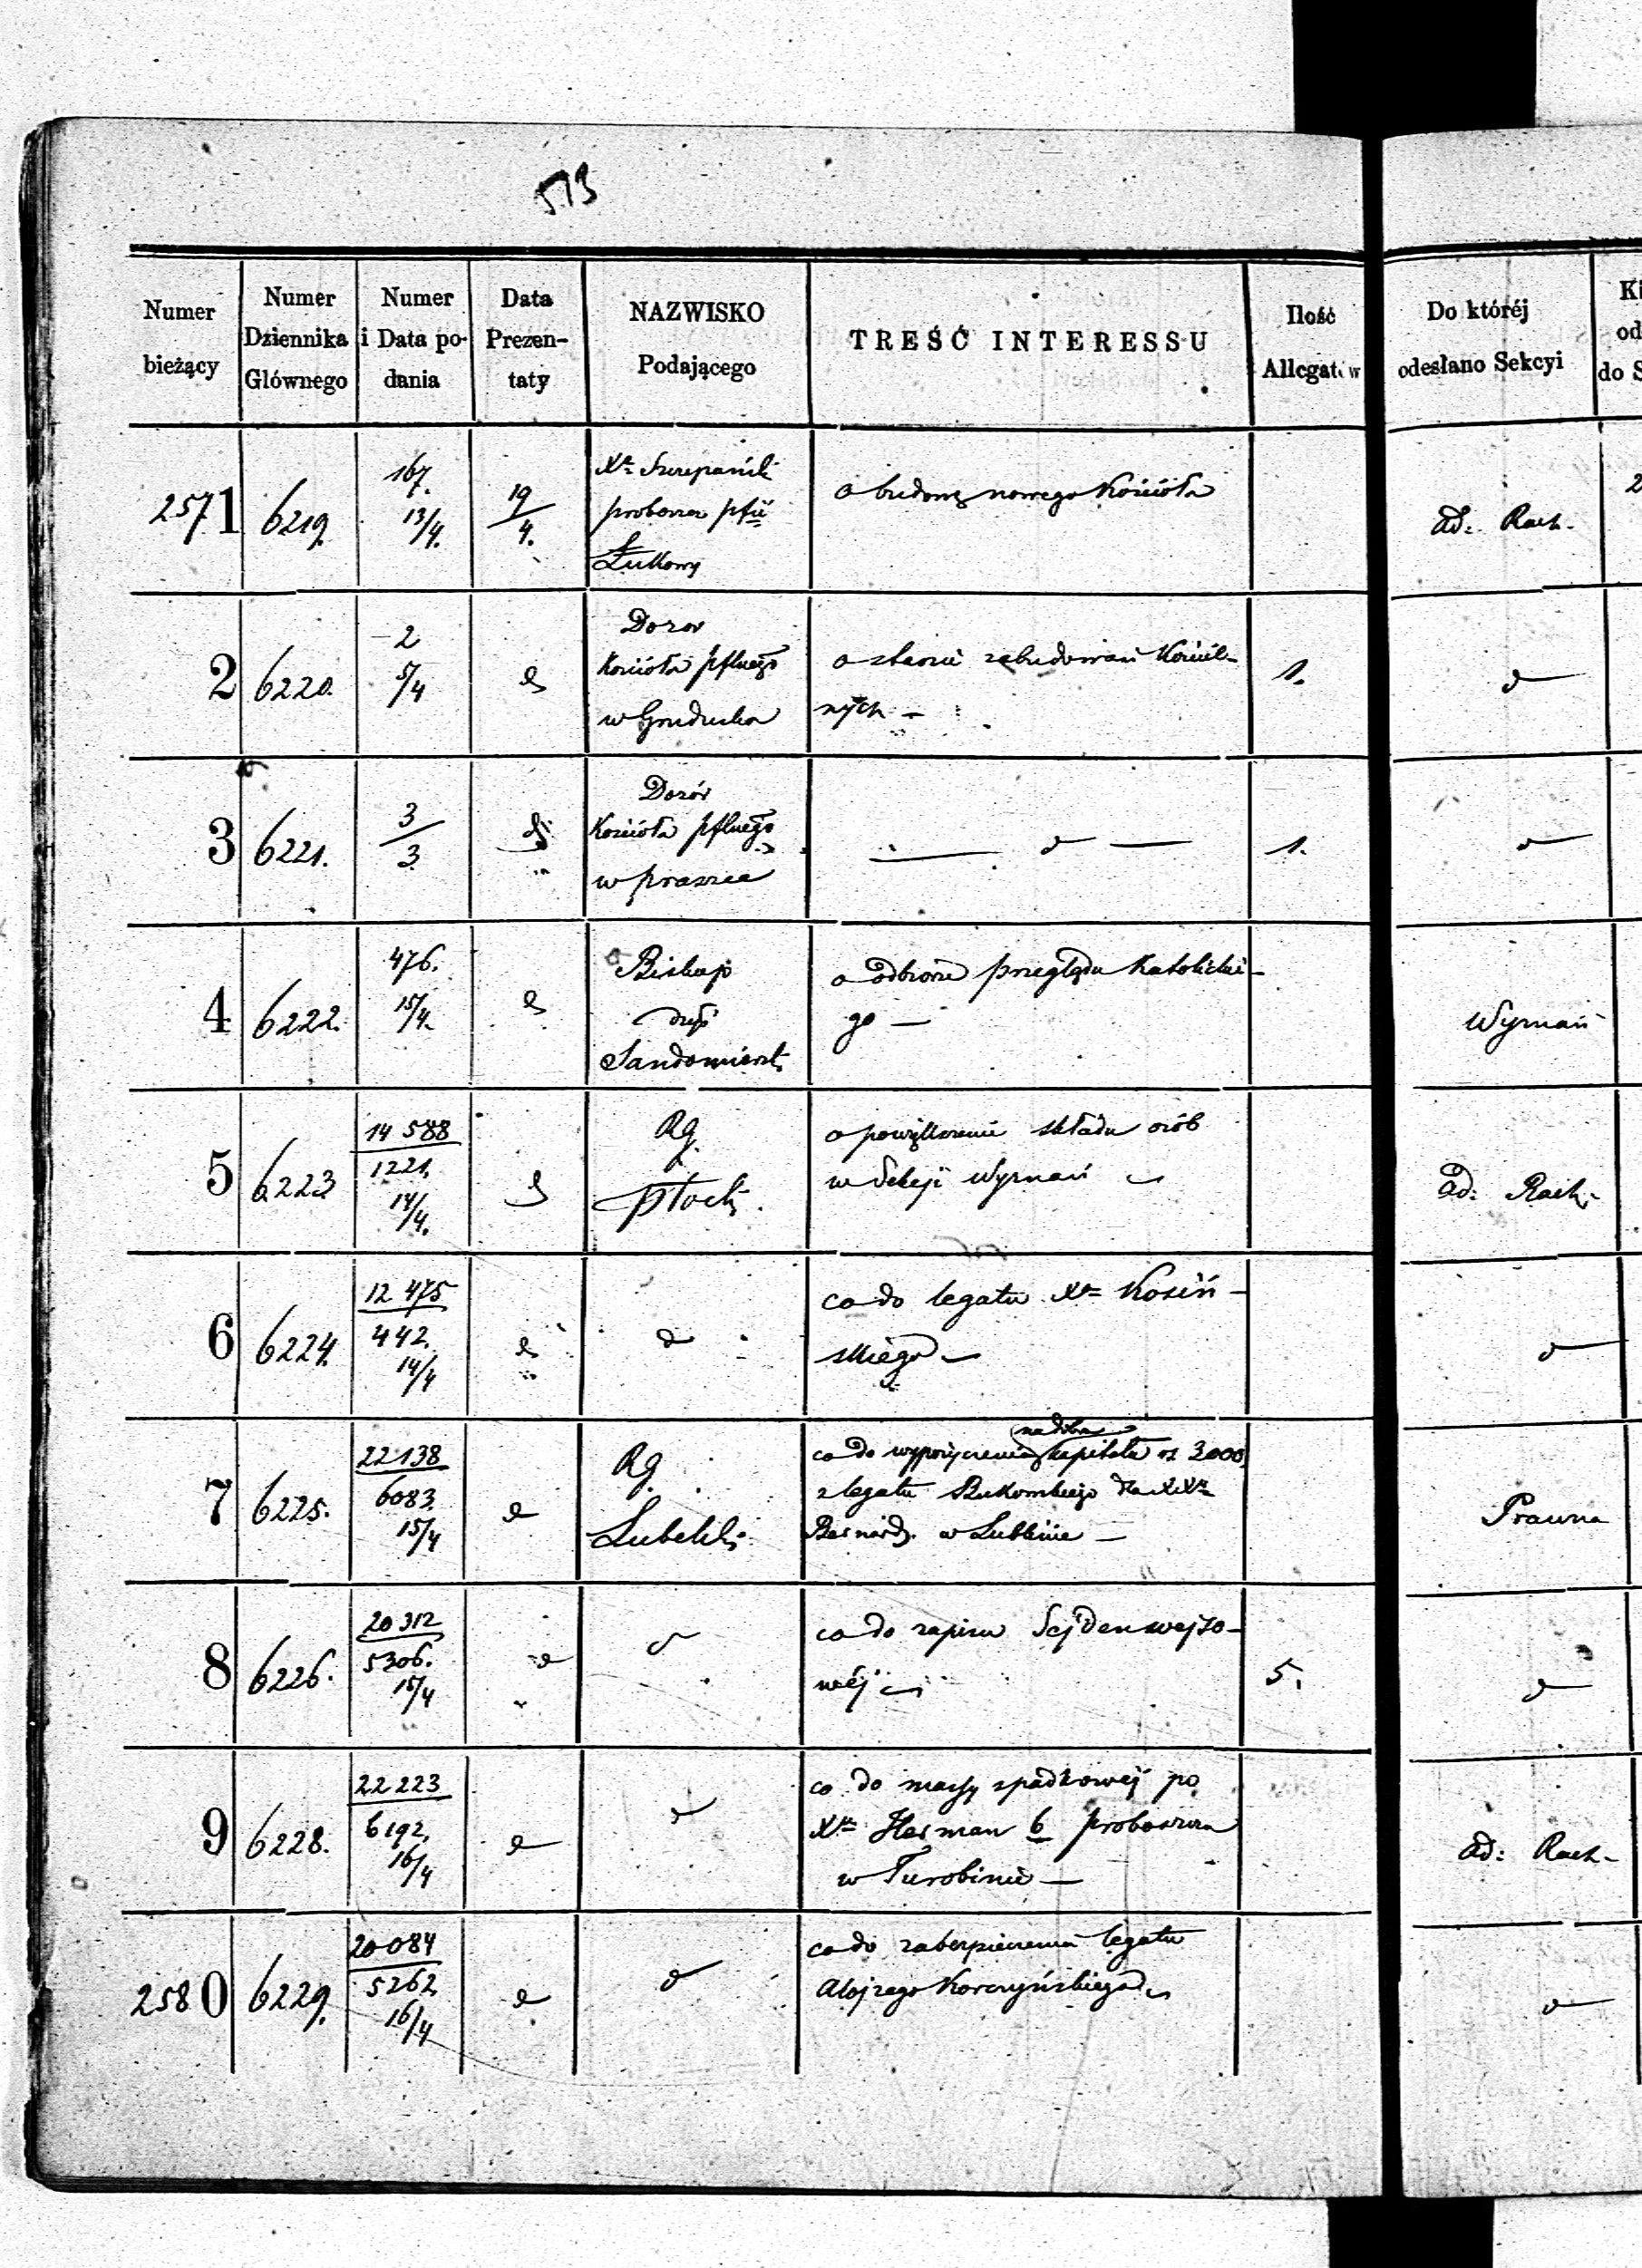 573
Numer bieżący
Numer Dziennika Głównego
Numer i Data podania
Data Prezentaty
NAZWISKO Podającego
TREŚĆ INTERESSU
Ilość Allegatów
Do któréj odesłano Sekcyi
2571 6219. 167. 13/4. 19/4. Xdz Szczepański
proboszcz pfii
Łukowy
o budowę nowego Kościoła
Ad: Rach.
2 6220. 2 5/4 d
Dozor
Kościoła pflnego
w
o stanie zabudowań Kościel-
nych — 1. d
3 6221. 3/3 d
Dozór
Kościoła pflnego
w Praszce
— d — 1. d
4 6222. 476. 15/4. d
Biskup
dyec
Sandomiersk.
o odbiorze przeglądu Katolickie-
go —
Wyznań
5 6223 14 588 1221. 14/4. d
Rg.
Płocki.
o powiększenie składu osób
w Sekcji Wyznań
Ad: Rach.
6 6224. 12 475 442. 14/4 d d
co do legatu Xdz Kosiń-
skiego — d
7 6225. 22 138 6083. 15/4 d
Rg.
Lubelski
co do wypożyczenia kapitału rs 3000
z legatu dla XXdz
Bernard. w Lublinie —
Prawna
8 6226. 20 312 5306. 15/4 d d
co do zapisu Sejdenwejso-
wéj 5. d
9 6228. 22 223 6192. 16/4 d d
co do massy spadkowej po
Xdz Herman b proboszczu
w Turobinie —
Ad: Rach.
2580 6229. 20 084 5262. 16/4 d d
co do zabezpieczenia legatu
Alojzego Korczyńskiego d